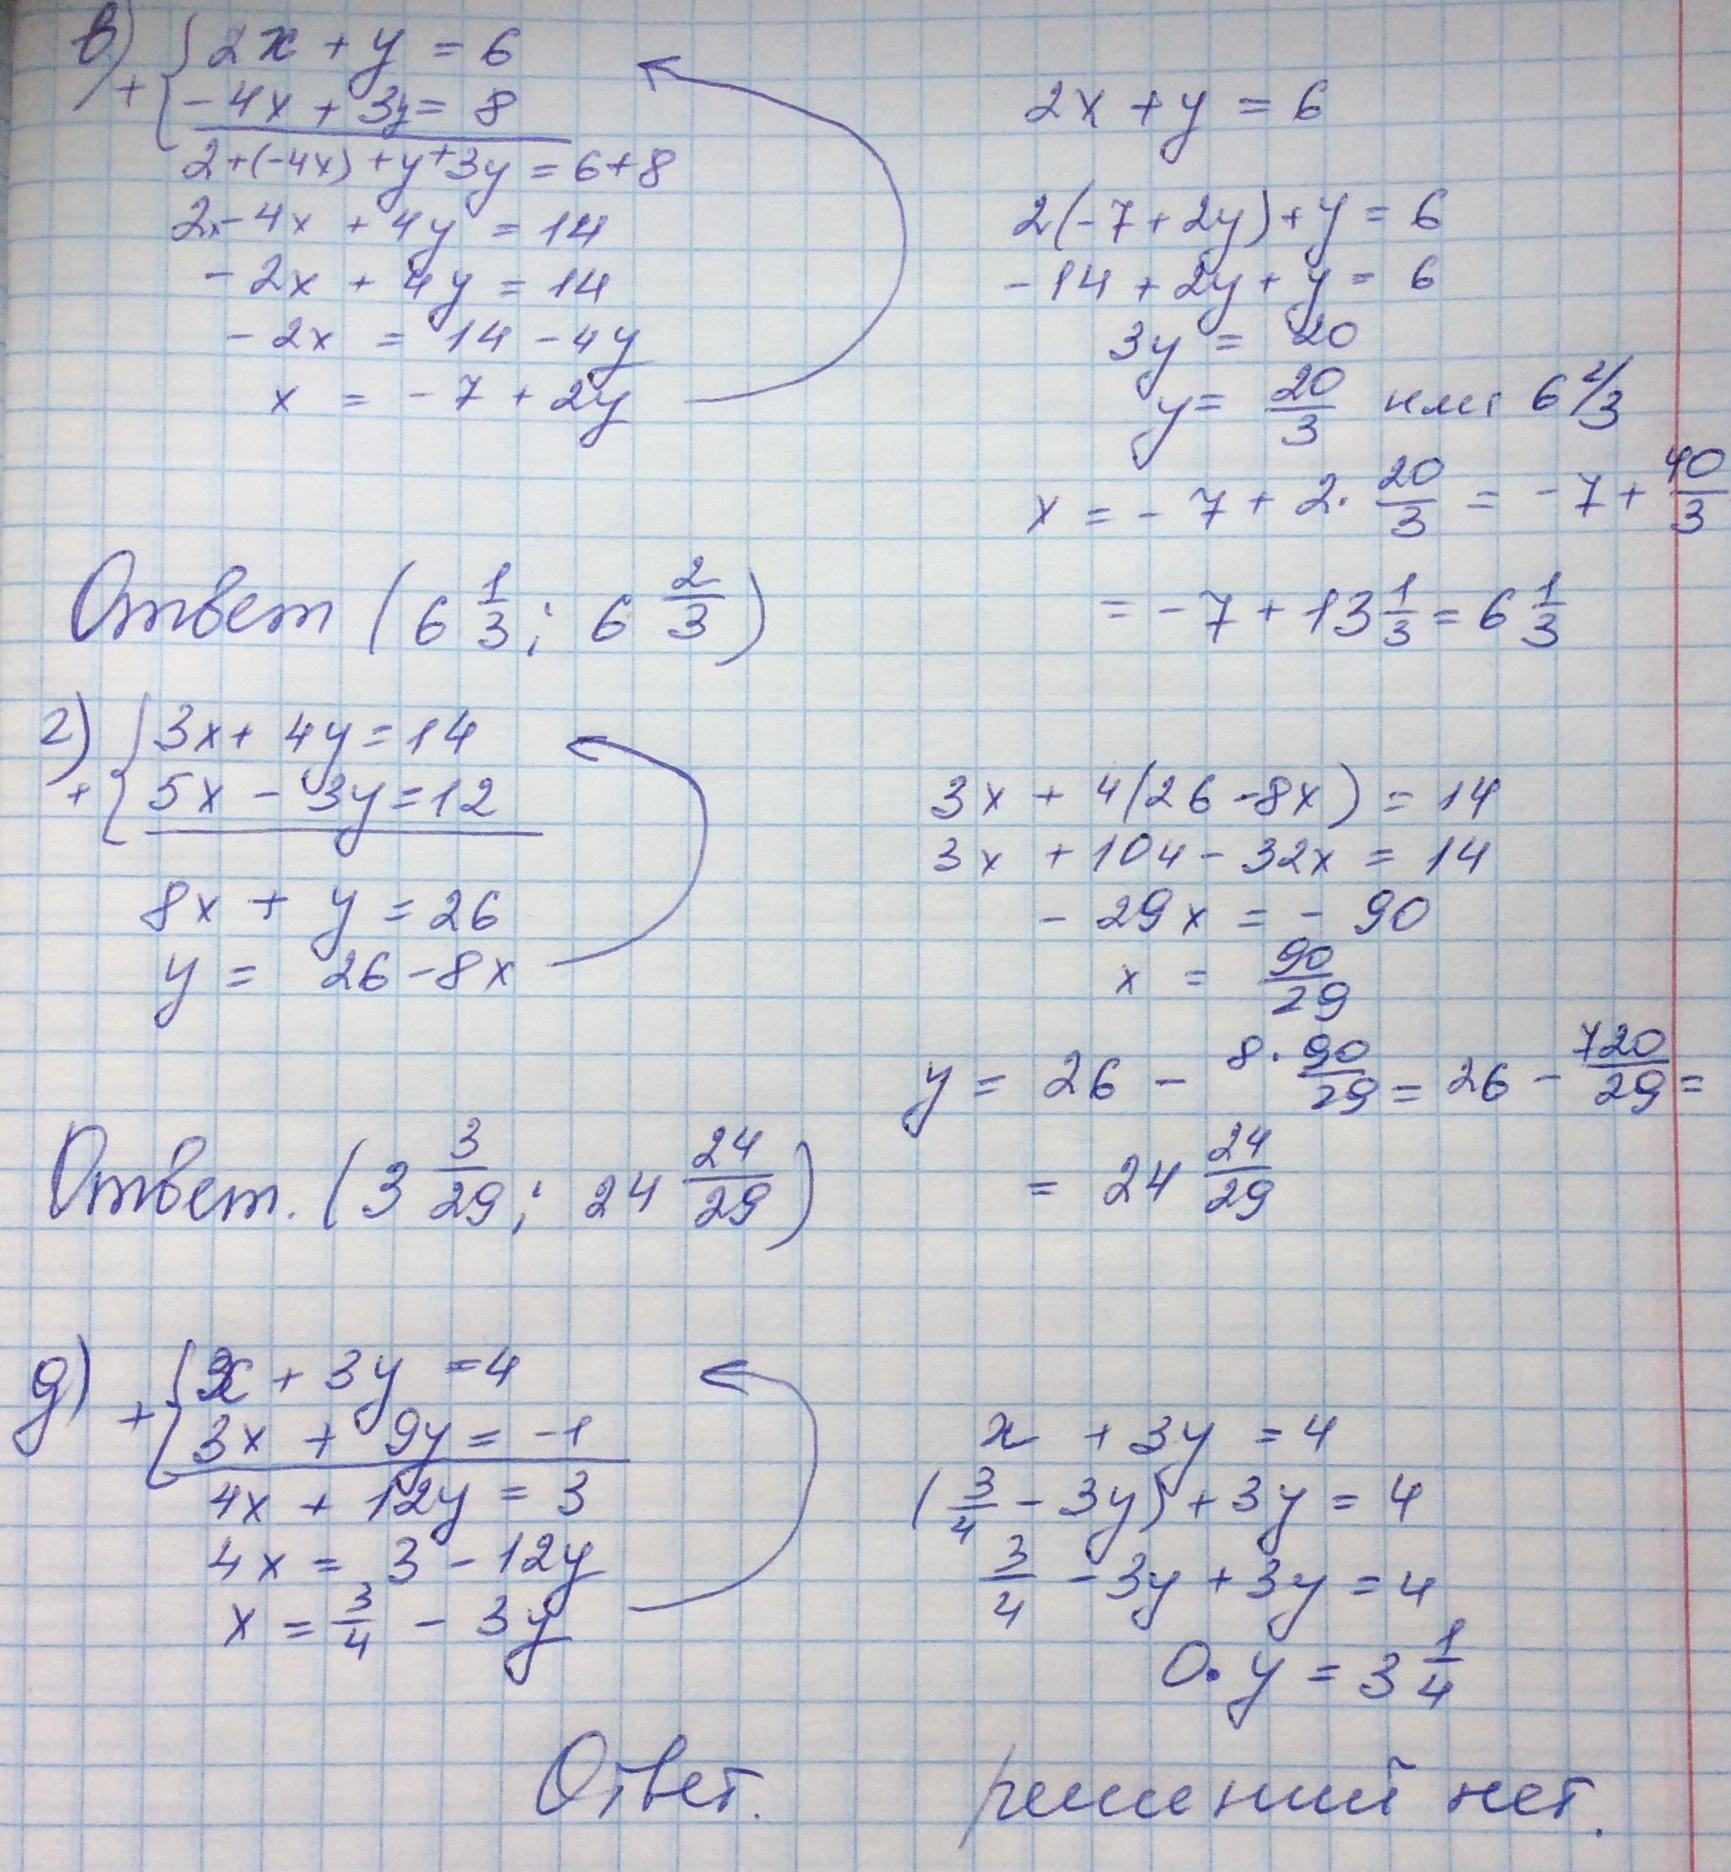 в) + { 2x + y = 6
-4x + 3y = 8
2+(-4x)+y+3y = 6+8
2x-4x + 4y = 14
-2x + 4y = 14
-2x = 14 - 4y
x = -7 + 2y
2x + y = 6
2(-7+2y)+y = 6
-14 + 2y + y = 6
3y = 20
y = 20/3 или 6 2/3
x = -7 + 2· 20/3 = -7 + 40/3
= -7 + 13 1/3 = 6 1/3
Ответ (6 1/3; 6 2/3)
г) + { 3x + 4y = 14
5x - 3y = 12
8x + y = 26
y = 26 - 8x
3x + 4(26-8x) = 14
3x + 104 - 32x = 14
-29x = -90
x = 90/29
y = 26 - 8· 90/29 = 26 - 720/29 =
= 24 24/29
Ответ. (3 3/29; 24 24/29)
д) + { x + 3y = 4
3x + 9y = -1
4x + 12y = 3
4x = 3 - 12y
x = 3/4 - 3y
x + 3y = 4
(3/4 - 3y) + 3y = 4
3/4 - 3y + 3y = 4
0·y = 3 1/4
Ответ. решений нет.